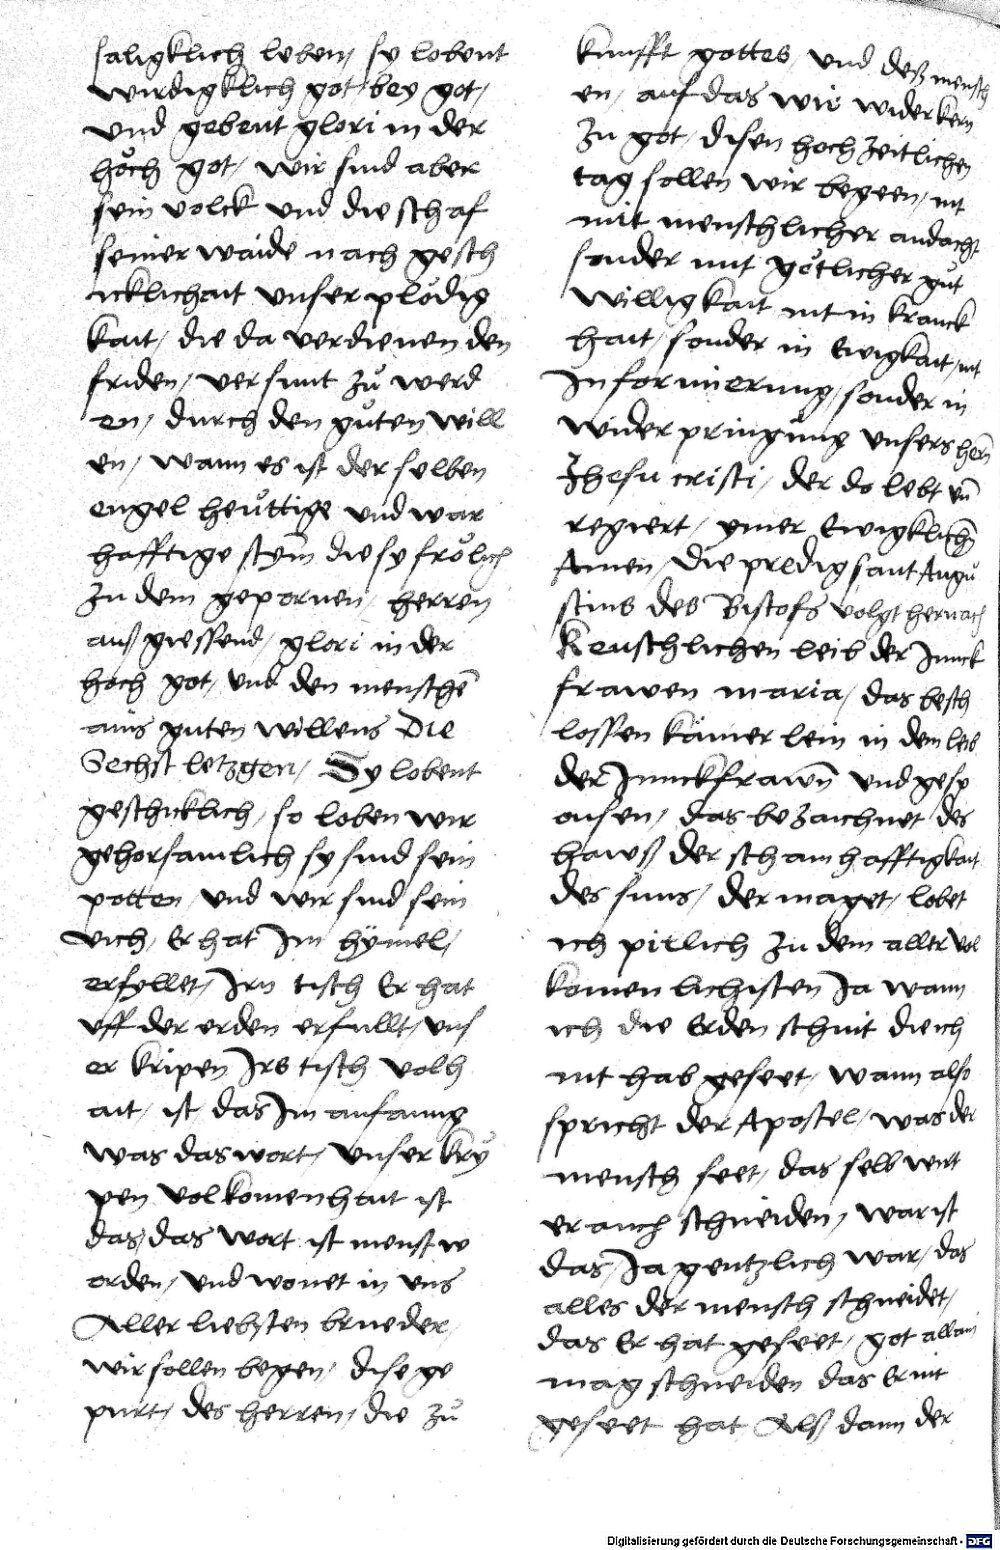 saligklich leben, sy lobent
wirdigklich got bey got,
vnd gebent glori in der
höch got, wir sind aber
sein volck vnd die schaf
seiner waide nach gesch
icklichait vnser plödig
kait, die da verdienen den
friden, versunt zů werd
en, durch den gůten will
en, wann es ist der selben
engel heüttige vnd war
hafftige stym̄ die sy frölich
zu dem gepornen herren
auß giessend, glori in der
hoch got, vnd den menschē
ains guten willens Die
Sechst letzgen, Sy lobent
geschicklich, so loben wir
gehorsamlich sy sind sein
potten, vnd wir sind sein
vich, Er hat Im hÿmel,
erfyllet, Irn tisch Er hat
vff der erden erfullt, vns
er kripen Irs tisch volh
ait, ist das Im anfanng
was das wort, vnser kry
pen volkomenhait ist
das, das wort ist mensch w
orden, vnd wonet in vns
Aller liebsten brueder,
wir sollen begen, dise ge
purt, des herren, die zů
kunfft gottes, vnd deß mensch
en, auf das wir wider kern
zu got, disen hoch zeitlichen
tag sollen wir begeen, nit
mit menschlicher andacht
sonder mit götlicher gůt
willigkait nit in kranck
hait, sonder in Ewigkait, nit
Informierung, sonder in
widerpringůng vnsers hern
Jhesu cristi, der do lebt vn̄
regiert, ymer Ewigklichn̄
Amen, Die predig sant Augu
stins des Bistofs volgt hernach
Keuschlichen leib der Junck
frawen maria, das besch
lossen kämerlein in dem leib
der Junckfrawn̄ vnd gesp
onsen, das bezaichnet des
hawß der schamhafftigkait
des suns, der maget, lobet
ich pillich zu dem aller vol
komenlichisten Ja wann
ich die Erden schnit die ich
nit hab geseet, wann also
spricht der Apostel, was der
mensch seet, das selb wirt
er auch schneiden, war ist
das, Ja gentzlich war, das
alles der mensch schneidet,
das Er hat geseet, got allain
mag schneiden das Er nit
geseet hat Alß dann der
Digitalisierung gefördert durch die Deutsche Forschungsgemeinschaft - DFG